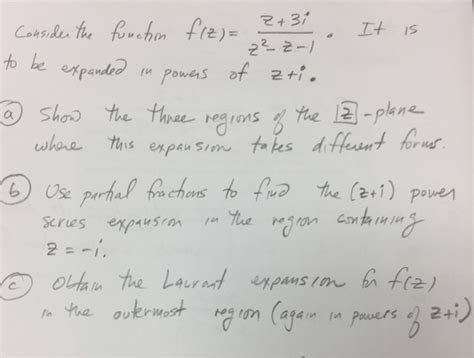 Consider the function f(z) = (z + 3i)/(z² - z - 1) . It is
to be expanded in powers of z+i.
(a) Show the three regions of the z -plane
where this expansion takes different forms.
(b) Use partial fractions to find the (z+i) power
series expansion in the region containing
z = -i.
(c) Obtain the Laurant expansion for f(z)
in the outermost region (again in powers of z+i)